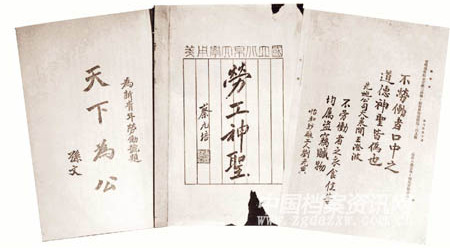 為新青年勞働號題
天下為公
孫文
勞工神聖
蔡元培
不勞働者口中之
道德神聖皆偽也
不勞働者之衣食住等
均屬盜竊贓物
中国档案资讯网
www.zgdazxw.com.cn